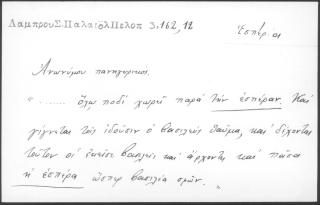 Λαμπρου Σ. Παλαιολ Πελοπ 3.162,12
Ἑσπέρ.αι
Ἀνωνύμου πανηγυρικός.
"....... ὅλῳ ποδὶ χωρεῖ παρὰ τὴν ἑσπέραν. Καὶ
γίγνεται τοῖς ἰδοῦσιν ὁ βασιλεὺς θαῦμα, καὶ δέχονται
τοῦτον οἱ ἐκεῖσε βασιλεῖς καὶ ἄρχονται καὶ πᾶσα
ἡ ἑσπέρα ὥσπερ βασιλέα ὁρῶν. "